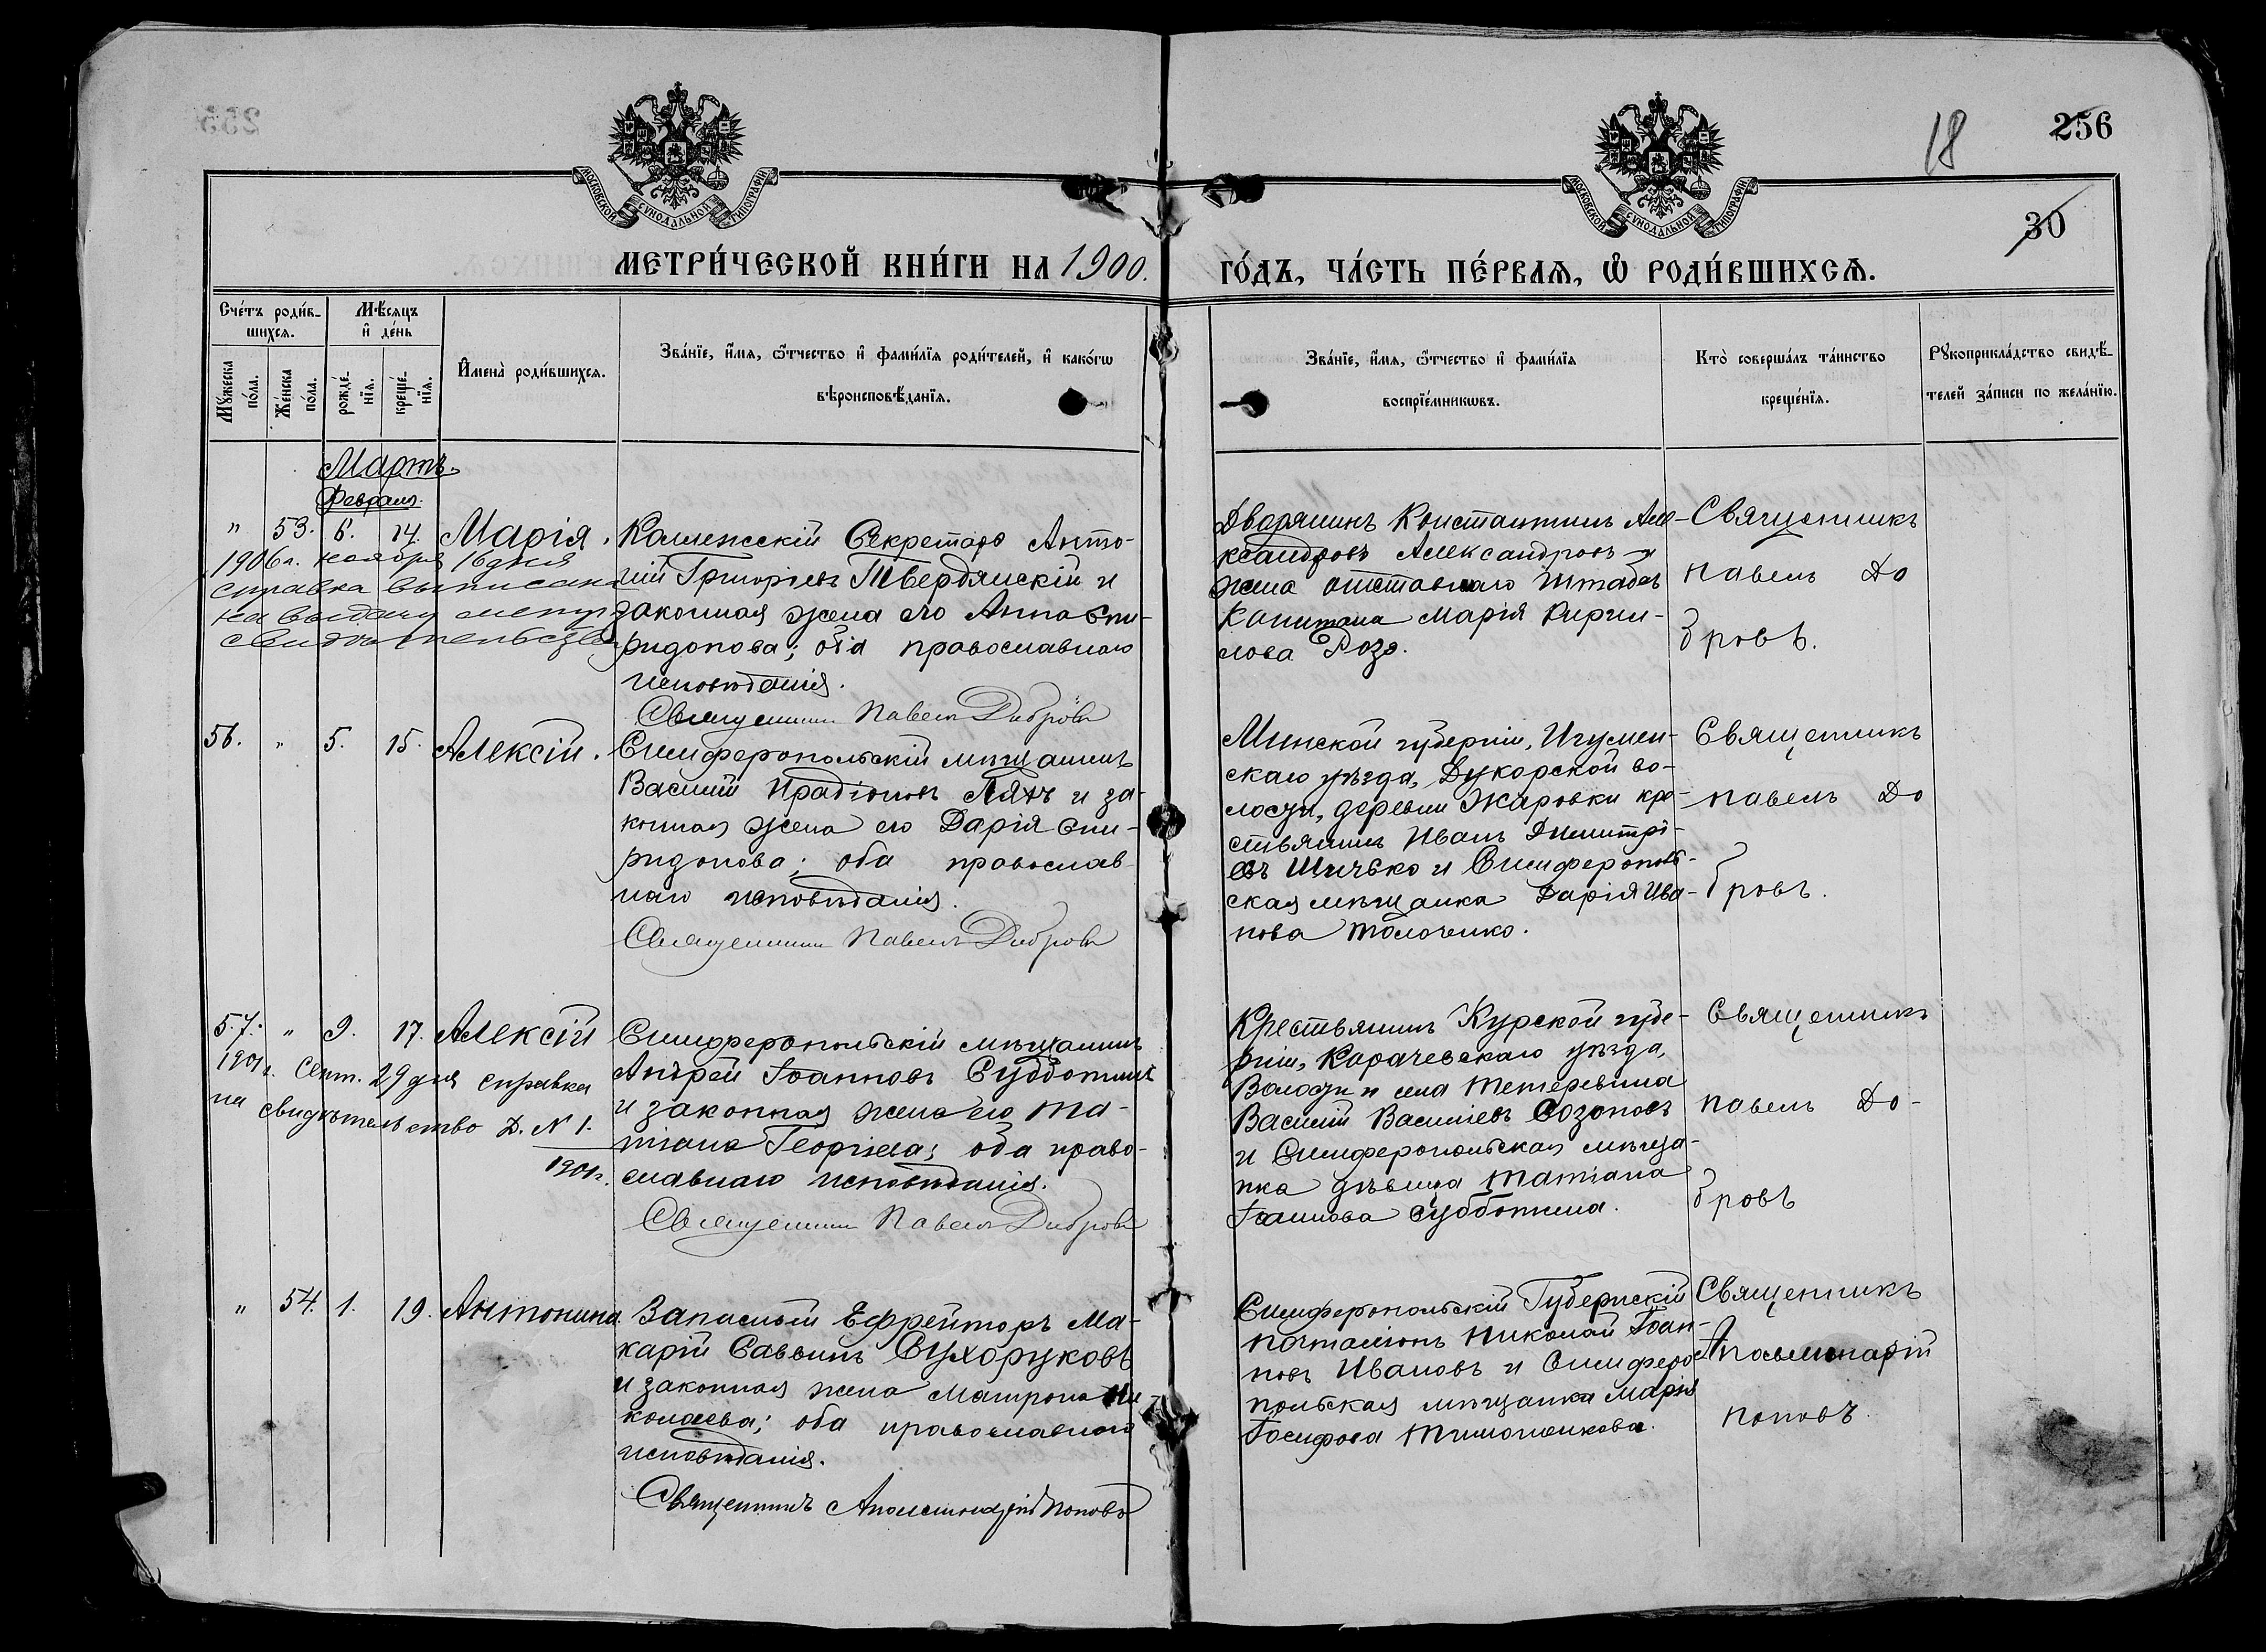 18
256
30
МОСКОВСКОЙ СѴНОДАЛЬНОЙ ТИПОГРАФІИ
МОСКОВСКОЙ СѴНОДАЛЬНОЙ ТИПОГРАФІИ
МЕТРИ́ЧЕСКОЙ КНИ́ГИ НА 1900.
ГО́ДЪ, ЧА́СТЬ ПЕ́РВАѦ, Ѡ҆ РОДИ́ВШИХСѦ.
Сче́тъ роди́в-
шихсѧ.
Мꙋ́жеска по́ла.
Же́нска по́ла.
Мѣ́сѧцъ
и҆ де́нь
рожде́-
нїѧ.
креще́-
нїѧ.
И҆мена̀ роди́вшихсѧ.
Зва́нїе, и҆́мѧ, ѻ҆́тчество и҆ фами́лїѧ роди́телей, и҆ како́гѡ
вѣроисповѣ́данїѧ.
Зва́нїе, и҆́мѧ, ѻ҆́тчество и҆ фами́лїѧ
воспрїе́мникѡвъ.
Кто̀ соверша́лъ та́инство
креще́нїѧ.
Рꙋкоприкла́дство свидѣ́-
телей за́писи по жела́нїю.
Мартъ.
Февраля.
" 53. 6. 14. Марія.
1906 г. ноября 16 дня
справка выписана
на выдачу метр
Коллежскій Секретарь Анто-
ній Григоріевъ Твердянскій и
законная жена его Анна Спи-
ридонова; оба православнаго
исповѣданія.
Священникъ Павелъ Добровъ
Дворянинъ Константинъ Але-
ксандровъ Александровъ и
жена отставнаго Штабсъ
Капитана Марія Кирил-
лова Розо.
Священникъ
Павелъ До
бровъ.
56. " 5. 15. Алексій.
Симферопольскій мѣщанинъ
Василій Иродіоновъ Лячъ и за-
конная жена его Дарія Спи-
ридонова; оба православ-
наго исповѣданія.
Священникъ Павелъ Добровъ
Минской губерніи, Игумен-
скаго уѣзда, Дукорской во-
лости, деревни Жаровки кре-
стьянинъ Иванъ Димитрі-
евъ Шичко и Симферополь-
ская мѣщанка Дарія Ива-
нова Толоченко.
Священникъ
Павелъ До
бровъ.
57. " 9. 17. Алексій
1901 г. Сент. 29 дня справка
на свидѣтельство Д. № 1.
1901 г.
Симферопольскій мѣщанинъ
Андрей Іоанновъ Субботинъ
и законная жена его Та-
тіана Георгіева; оба право-
славнаго исповѣданія.
Священникъ Павелъ Добровъ
Крестьянинъ Курской губе-
рніи, Карачевскаго уѣзда,
Волости и села Тетеревина
Василій Васильевъ Созоновъ
и Симферопольская мѣща-
нка дѣвица Татіана
Іоаннова Субботина.
Священникъ
Павелъ До-
бровъ
" 54. 1. 19. Антонина.
Запасный Ефрейторъ Ма-
карій Саввинъ Сухоруковъ
и законная жена Матрона Ни-
колаева; оба православнаго
исповѣданія.
Священникъ Аполлинарій Поповъ
Симферопольскій Губернскій
почталіонъ Николай Іоан-
новъ Ивановъ и Симферо-
польская мѣщанка Марія
Іосифова Тимошенкова.
Священникъ
Аполлинарій
Поповъ.